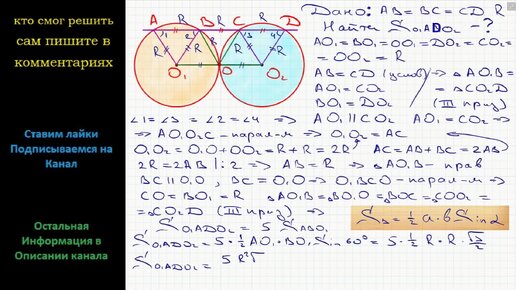 кто смог решить
сам пишите в
комментариях
Ставим лайки
Подписываемся на
Канал
Остальная
Информация в
Описании канала
A R B R C R D
1 2 3 4
R R R R R
O₁ O O₂
Дано: AB = BC = CD, R
Найти SO₁ADO₂ - ?
AO₁ = BO₁ = OO₁ = DO₂ = CO₂ =
= OO₂ = R
AB = CD (услов) ⇒ △AO₁B =
AO₁ = CO₂ = △CO₂D
BO₁ = DO₂ (III приз)
∠1 = ∠3 = ∠2 = ∠4 ⇒ AO₁ ∥ CO₂ AO₁ = CO₂ ⇒
⇒ AO₁O₂C - парал-м ⇒ O₁O₂ = AC
O₁O₂ = O₁O + OO₂ = R + R = 2R AC = AB + BC = 2AB
2R = 2AB |: 2 ⇒ AB = R ⇒ △AO₁B - прав
BC ∥ O₁O, BC = O₁O ⇒ O₁BCO - парал-м ⇒
CO = BO₁ = R ⇒ △AO₁B = △BO₁O = △BOC = △COO₂ =
= △CO₂D (III приз) ⇒ S△ = ½ a · b Sin α
SO₁ADO₂ = 5 S△AO₁B
SO₁ADO₂ = 5 · ½ AO₁ · BO₁ Sin 60° = 5 · ½ R · R · √3/2
SO₁ADO₂ = 5R²√